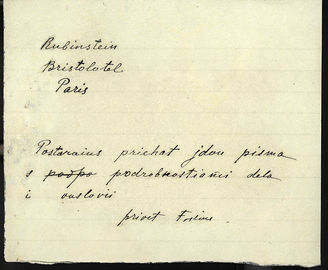 Rubinstein
Bristolotel
Paris
Postaraius priehat jdou pisma
s podpo podrobnostiami dela
i ouslovii
privet